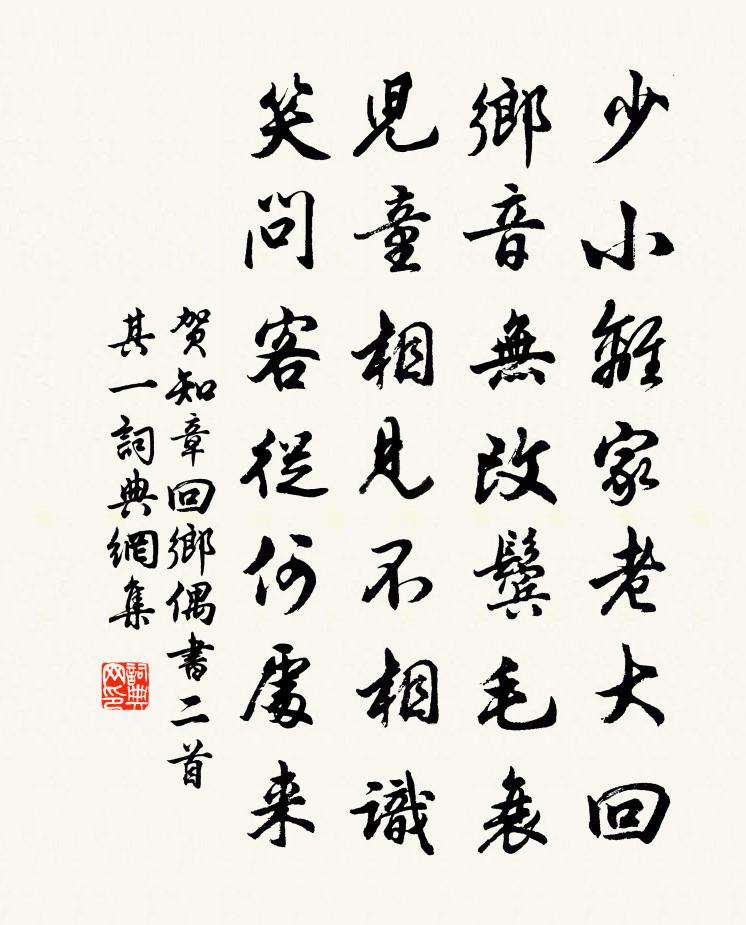 少小離家老大回
鄉音無改鬢毛衰
兒童相見不相識
笑問客從何處来
賀知章回鄉偶書二首
其一詞典網集
詞典网印